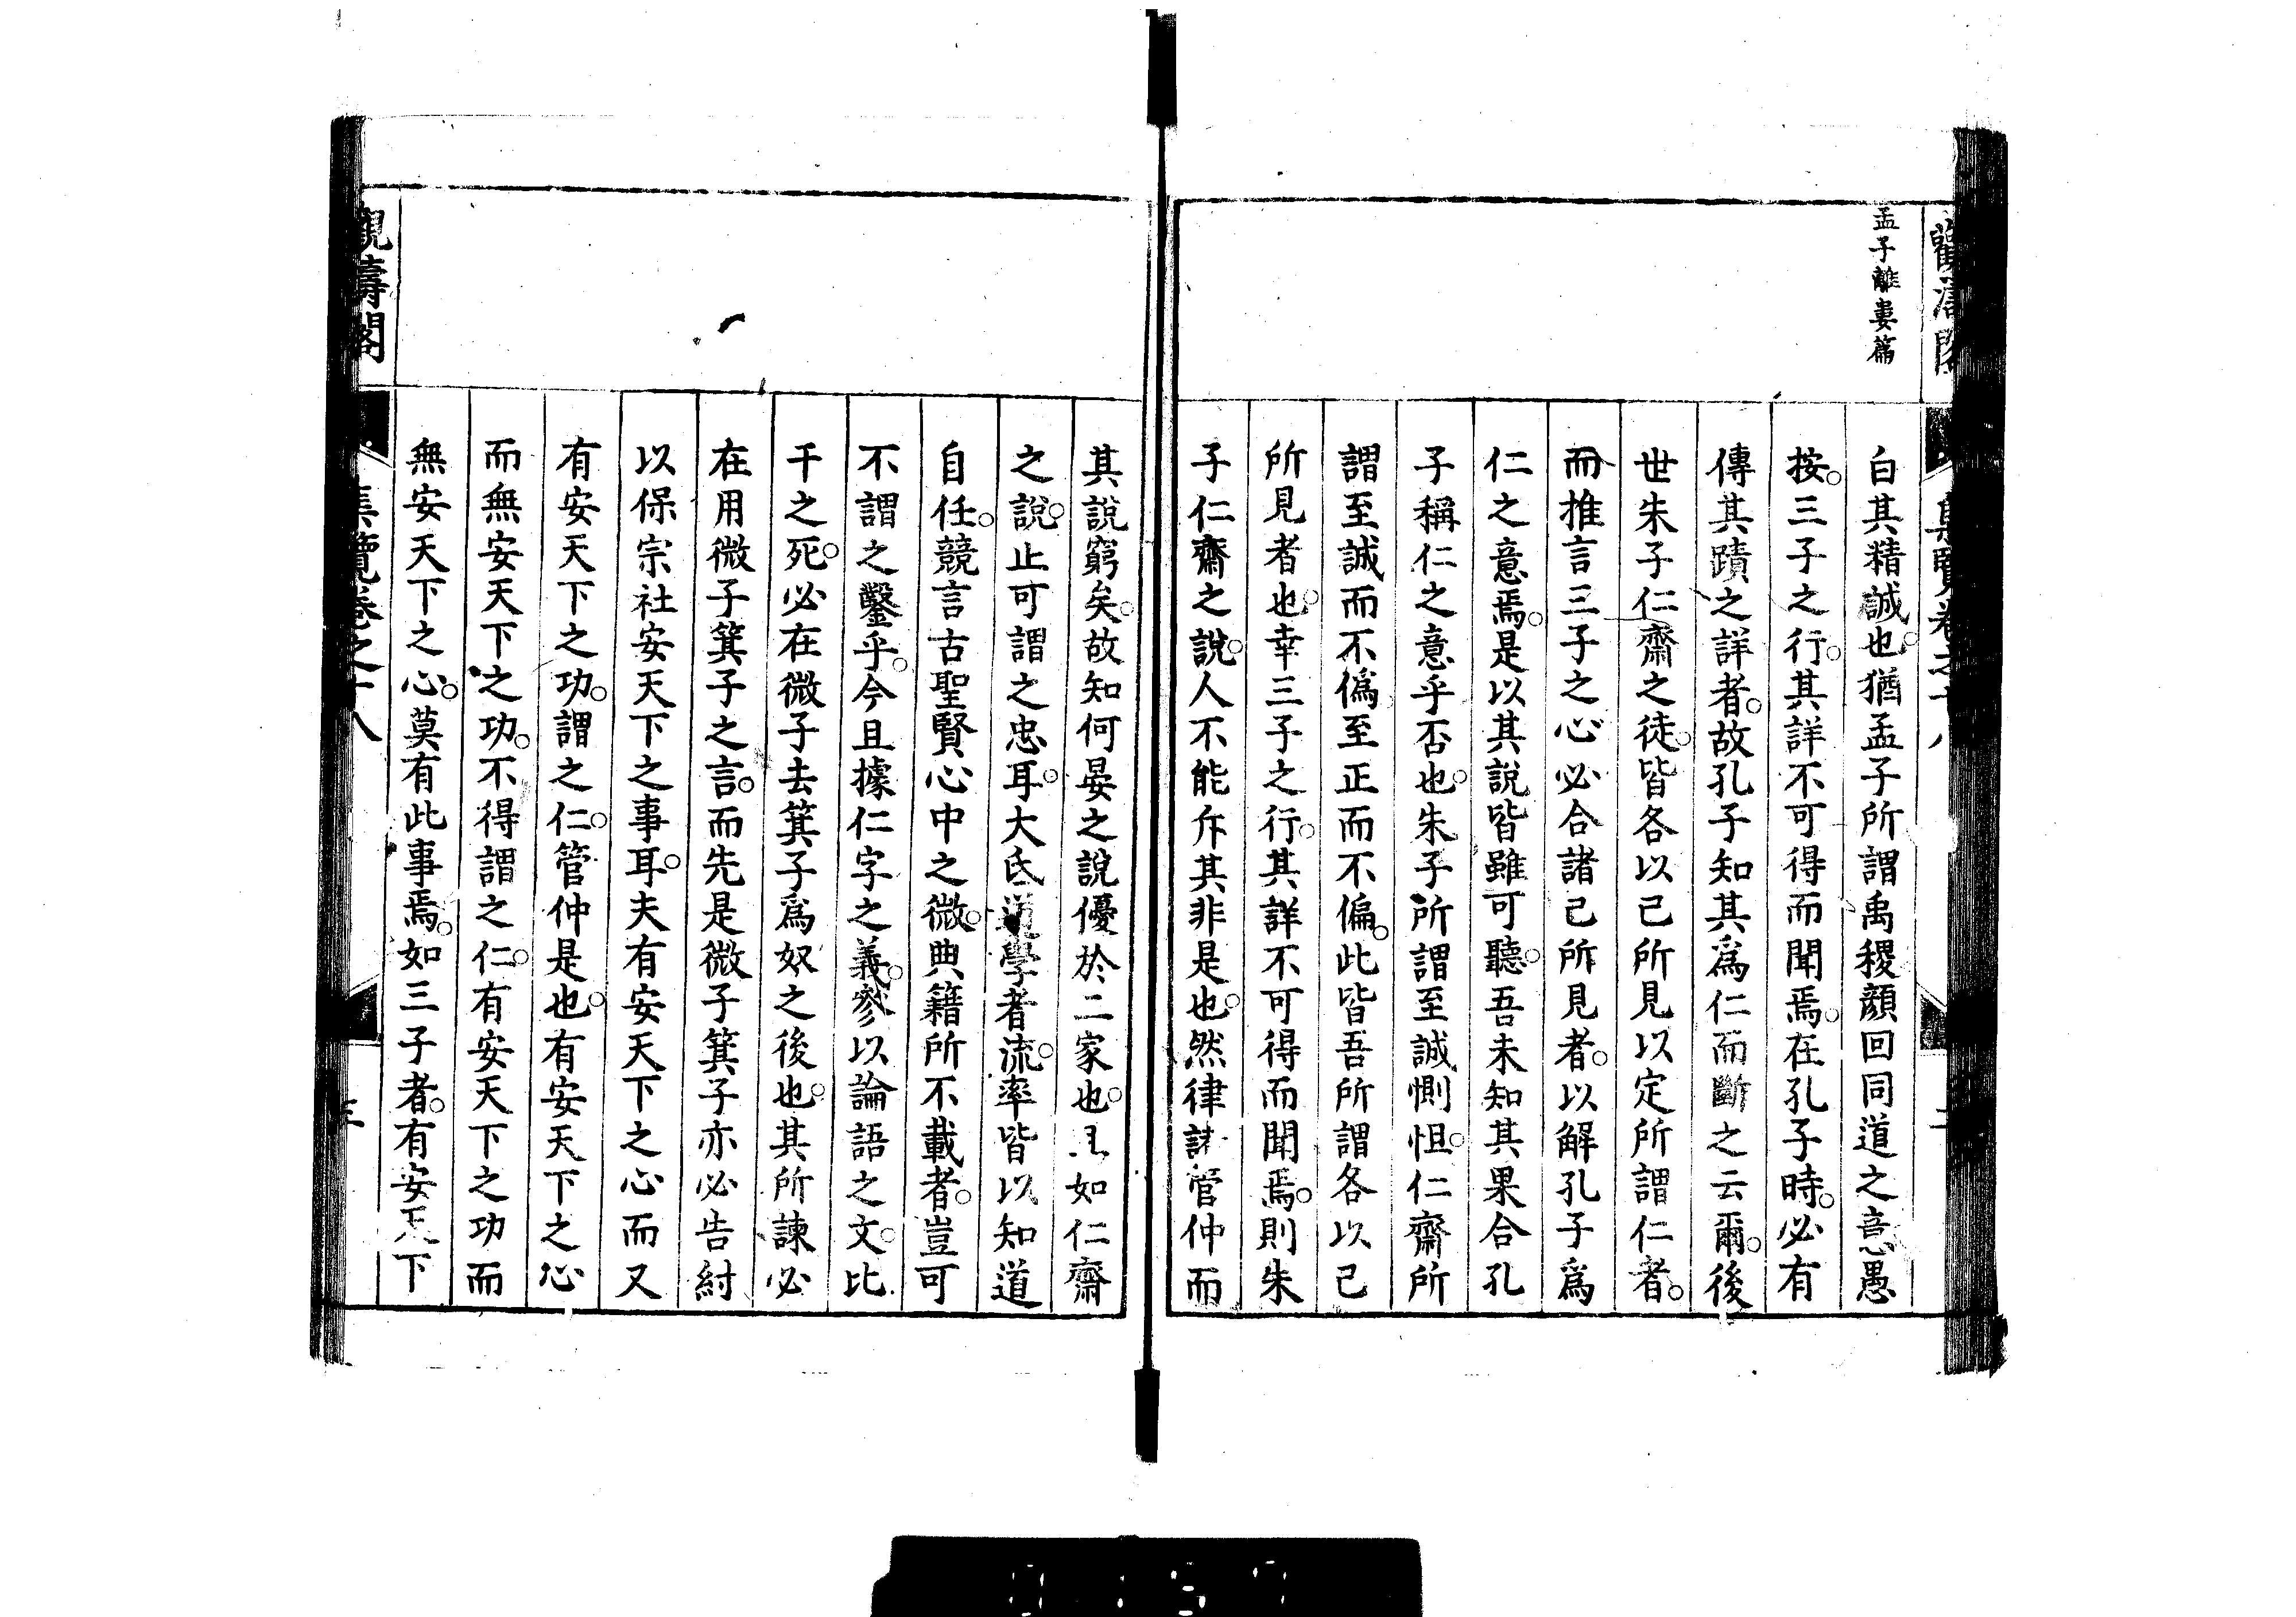 孟子離婁篇
白其精誠也。猶孟子所謂禹稷顏回同道之意愚
按。三子之行。其詳不可得而聞焉。在孔子時。必有
傳其蹟之詳者。故孔子知其爲仁而斷之云爾。後
世朱子仁齋之徒。皆各以己所見以定所謂仁者。
而推言三子之心必合諸己所見者。以解孔子爲
仁之意焉。是以其說皆雖可聽。吾未知其果合孔
子稱仁之意乎否也。朱子所謂至誠惻怛。仁齋所
謂至誠而不偽至正而不偏。此皆吾所謂各以己
所見者也。幸三子之行。其詳不可得而聞焉。則朱
子仁齋之說。人不能斥其非是也。然律諸管仲而
其說窮矣。故知何晏之說優於二家也。如仁齋
之說。止可謂之忠耳。大氐道學者流。率皆以知道
自任。競言古聖賢心中之微。典籍所不載者。豈可
不謂之鑿乎。今且據仁字之義。參以論語之文。比
干之死。必在微子去箕子爲奴之後也。其所諫必
在用微子箕子之言。而先是微子箕子亦必告紂
以保宗社安天下之事耳。夫有安天下之心而又
有安天下之功。謂之仁。管仲是也。有安天下之心
而無安天下之功。不得謂之仁。有安天下之功而
無安天下之心。莫有此事焉。如三子者。有安天下
集覽卷之十八